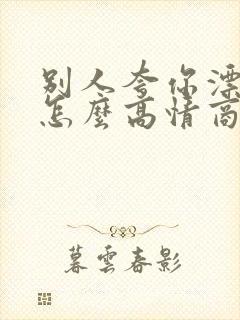 别人夸你漂
怎麼高情商
暮雲春影